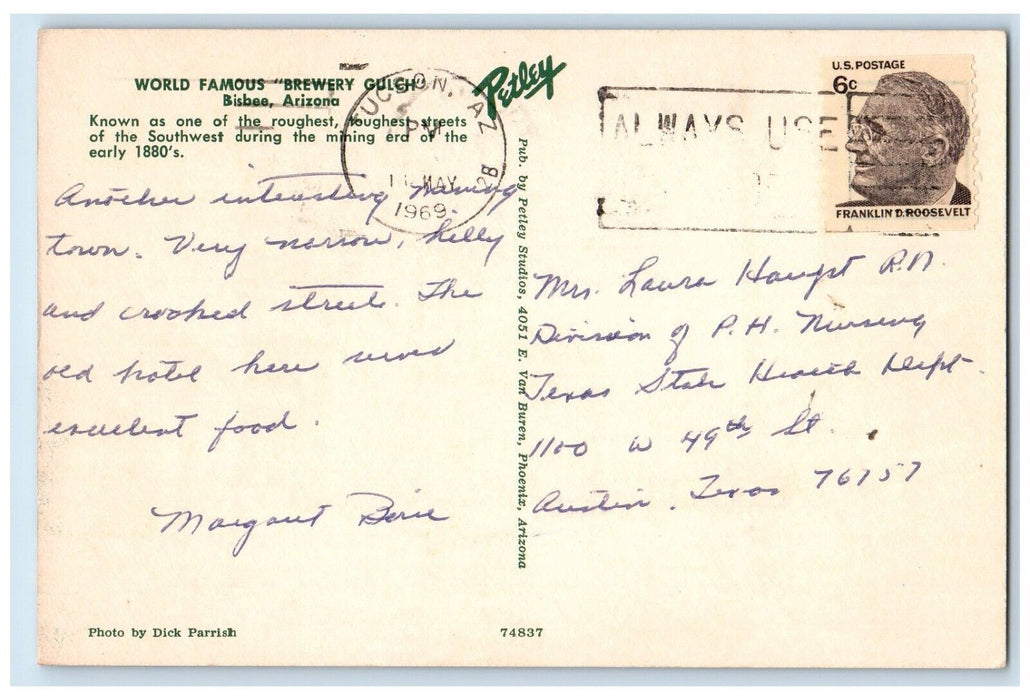 WORLD FAMOUS "BREWERY GULCH"
Bisbee, Arizona
Known as one of the roughest, toughest streets
of the Southwest during the mining era of the
early 1880's.
Another interesting mining
town. Very narrow, hilly
and crooked streets. The
old hotel here serves
excellent food.
Margaret
Photo by Dick Parrish
Petley
TUCSON, AZ
PM
11 MAY
1969
Pub. by Petley Studios, 4051 E. Van Buren, Phoenix, Arizona
74837
ALWAYS USE
U.S. POSTAGE
6c
FRANKLIN D. ROOSEVELT
Mrs. Laura R.N.
Division of P.H. Nursing
Texas State Health Dept.
1100 W 49th St.
Austin, Texas 76757